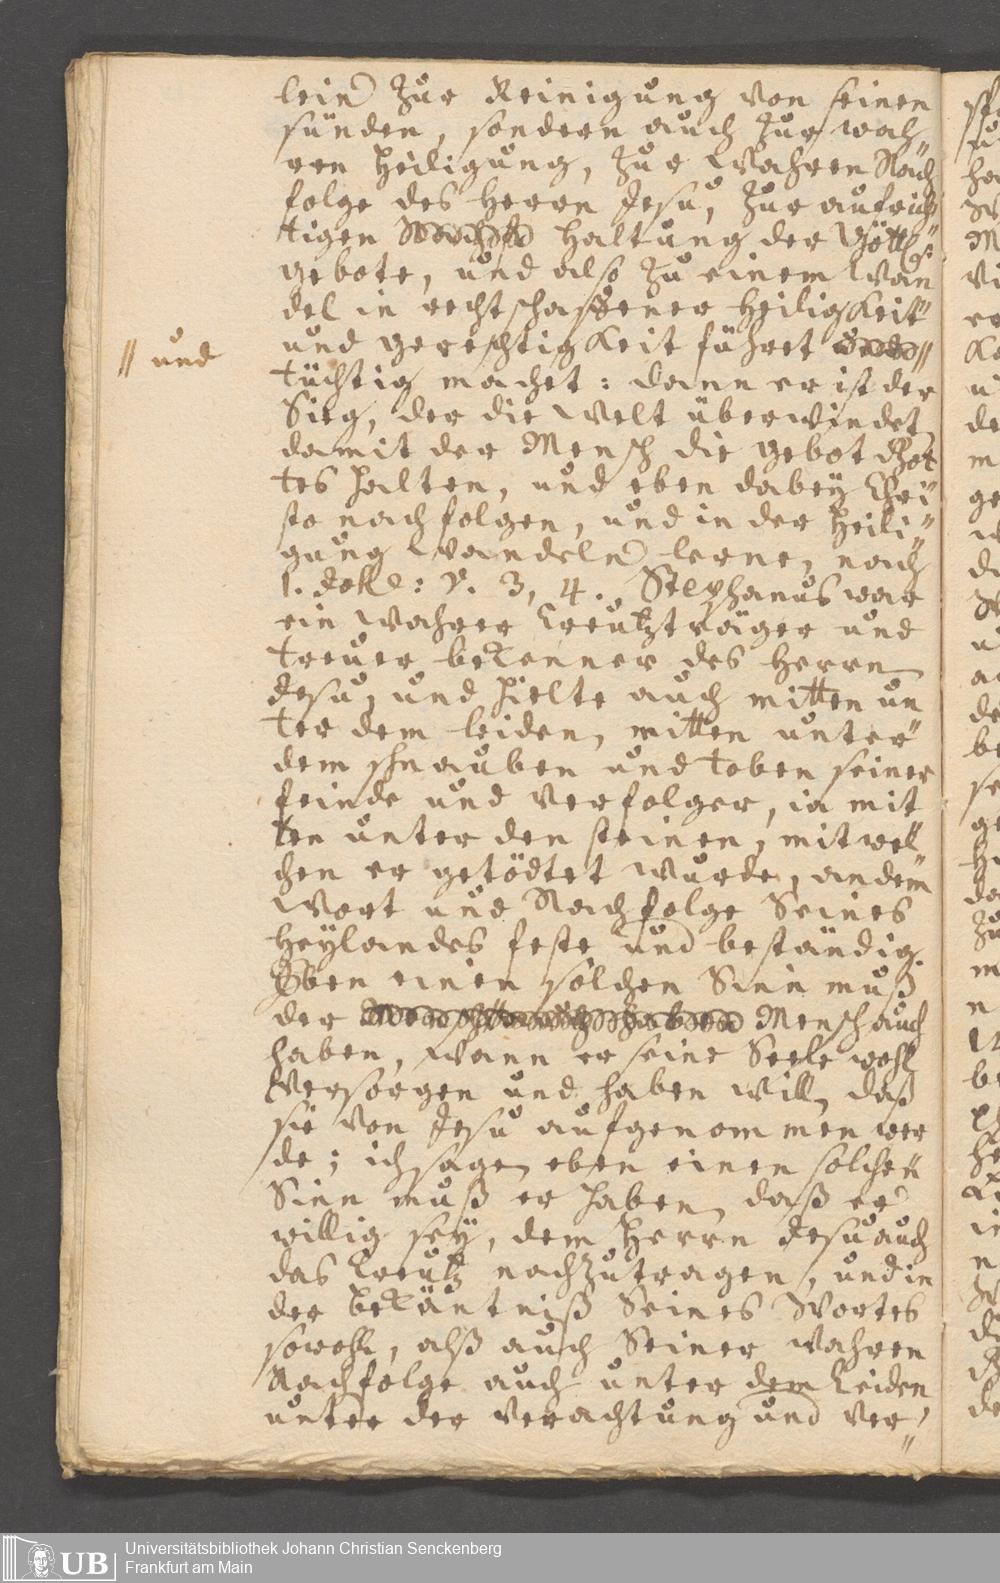 lein zur Reinigung von seinen
sünden, sondern auch zur wah„
ren Heiligung, zur wahren Nach„
folge des Herrn Jesu, zur aufrich„
tigen Haltung der Göttl.
gebote, und also zu einem Wan
del in rechtschaffener Heiligkeit
und gerechtigkeit führet //
// und
tüchtig machet: dann er ist der
Sieg, der die Welt überwindet,
damit der Mensch die gebot Got
tes halten, und eben dabey Chri„
sto nachfolgen, und in der Heili„
gung Wandeln lerne, nach
1. Joh: V. 3, 4. Stephanus war
ein wahrer Creutzträger und
treuer bekenner des Herrn
Jesu, und hielte auch mitten un
ter dem leiden, mitten unter
dem schnauben und toben seiner
feinde und verfolger, ia mit
ten unter den steinen, mit wel„
chen er getödtet wurde, an dem
Wort und Nachfolge Seines
Heylandes feste und beständig.
Eben einen solchen Sinn muß
der Mensch auch
haben, wann er seine Seele wohl
versorgen und haben will, daß
sie von Jesu aufgenommen wer
de; ich sage, eben einen solchen
Sinn muß er haben, daß er
willig sey, dem Herrn Jesu auch
das Creutz nachzutragen, und in
der bekäntniß Seines Wortes
sowohl, alß auch Seiner wahren
Nachfolge auch unter dem Leiden
unter der verachtung und ver„
UB
Universitätsbibliothek Johann Christian Senckenberg
Frankfurt am Main